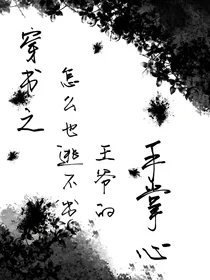 穿书之
怎么也逃不出
王爷的
手掌心